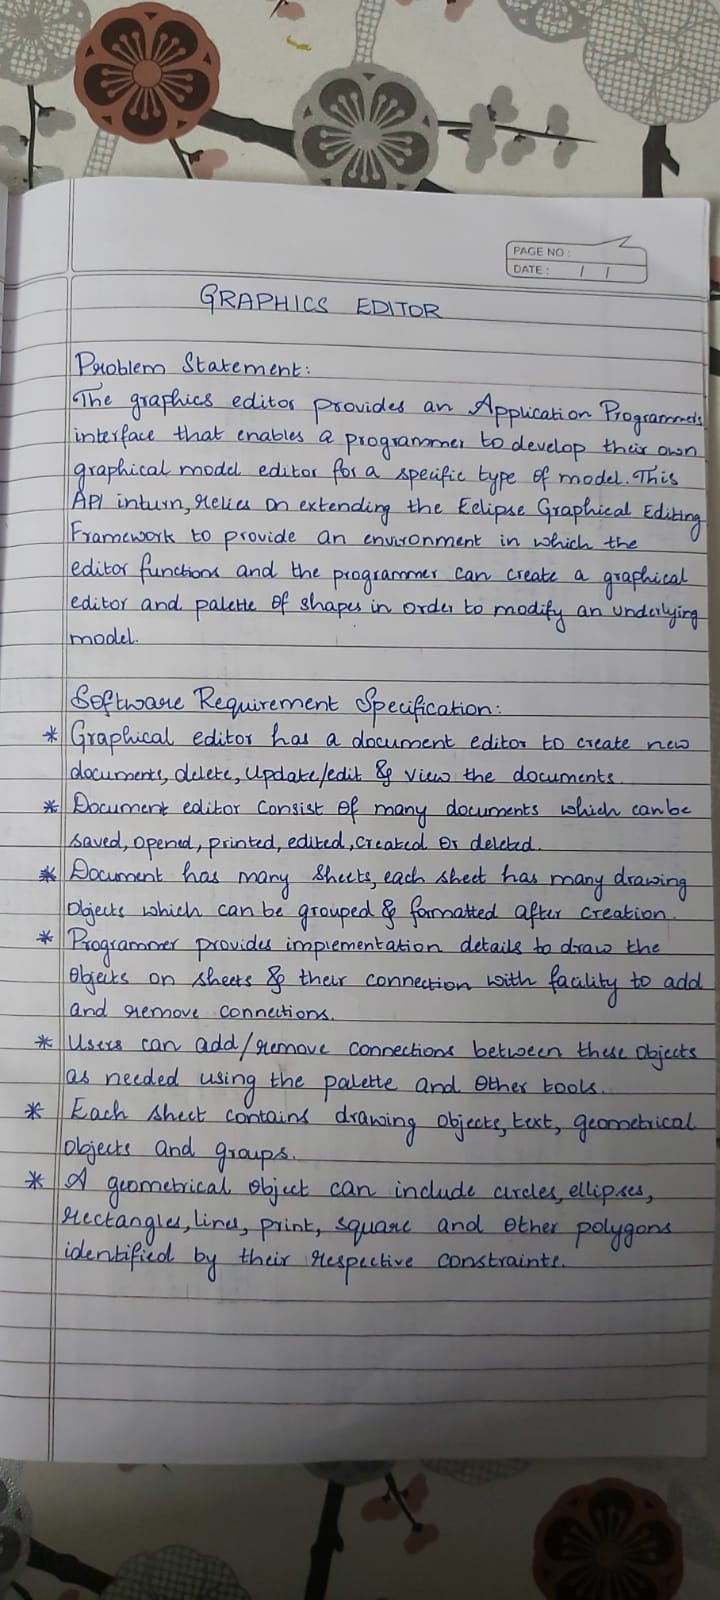 PAGE NO :
DATE : / /
GRAPHICS EDITOR
Problem Statement:
The graphics editor provides an Application Programmers
interface that enables a programmer to develop their own
graphical model editor for a specific type of model. This
API inturn, relies on extending the Eclipse Graphical Editing
Framework to provide an environment in which the
editor functions and the programmer can create a graphical
editor and palette of shapes in order to modify an underlying
model.
Software Requirement Specification:
* Graphical editor has a document editor to create new
documents, delete, update/edit & view the documents.
* Document editor consist of many documents which canbe
saved, opened, printed, edited, created or deleted.
* Document has many sheets, each sheet has many drawing
objects which can be grouped & formatted after creation.
* Programmer provides implementation details to draw the
objects on sheets & their connection with facility to add
and remove connections.
* Users can add/remove connections between these objects
as needed using the palette and other tools.
* Each sheet contains drawing objects, text, geometrical
objects and groups.
* A geometrical object can include circles, ellipses,
rectangles, lines, print, square and other polygons
identified by their respective constraints.